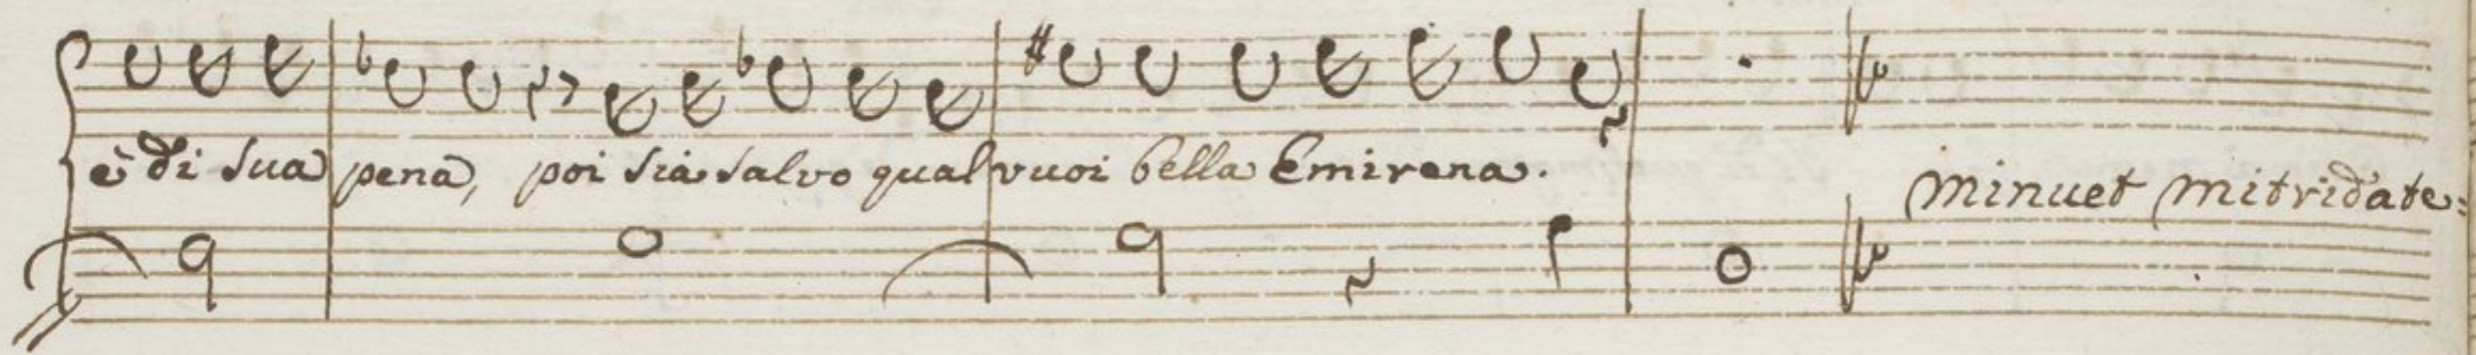 è di sua pena, poi sia salvo qual vuoi bella Emirena.
Minuet Mitridate